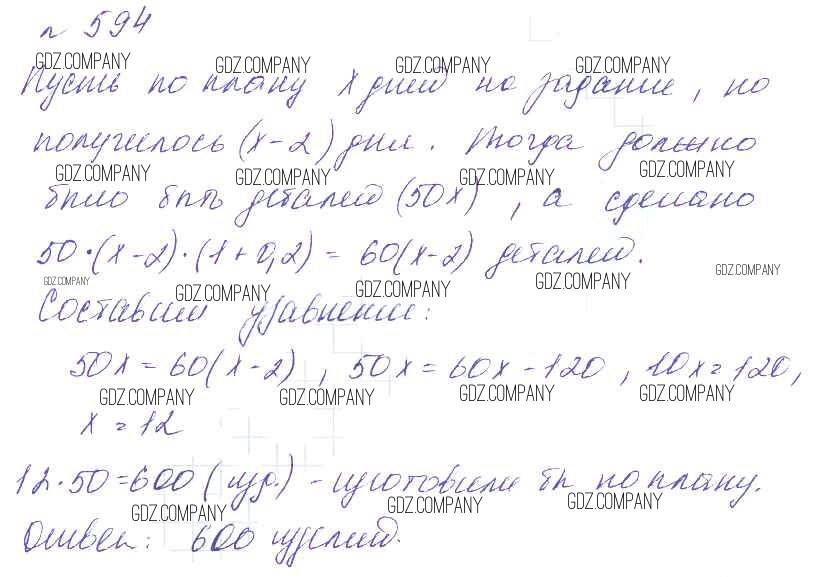 № 594
GDZ.COMPANY GDZ.COMPANY GDZ.COMPANY GDZ.COMPANY
Пусть по плану x дней на задание, но
получилось (x-2) дня. Тогда должно
GDZ.COMPANY GDZ.COMPANY GDZ.COMPANY GDZ.COMPANY
было быть деталей (50x), а сделано
50·(x-2)·(1+0,2) = 60(x-2) деталей.
GDZ.COMPANY GDZ.COMPANY GDZ.COMPANY GDZ.COMPANY GDZ.COMPANY
Составим уравнение:
50x = 60(x-2), 50x = 60x - 120, 10x = 120,
GDZ.COMPANY GDZ.COMPANY GDZ.COMPANY GDZ.COMPANY
x = 12
12·50=600 (изд.) - изготовили бы по плану.
GDZ.COMPANY GDZ.COMPANY GDZ.COMPANY
Ответ: 600 изделий.